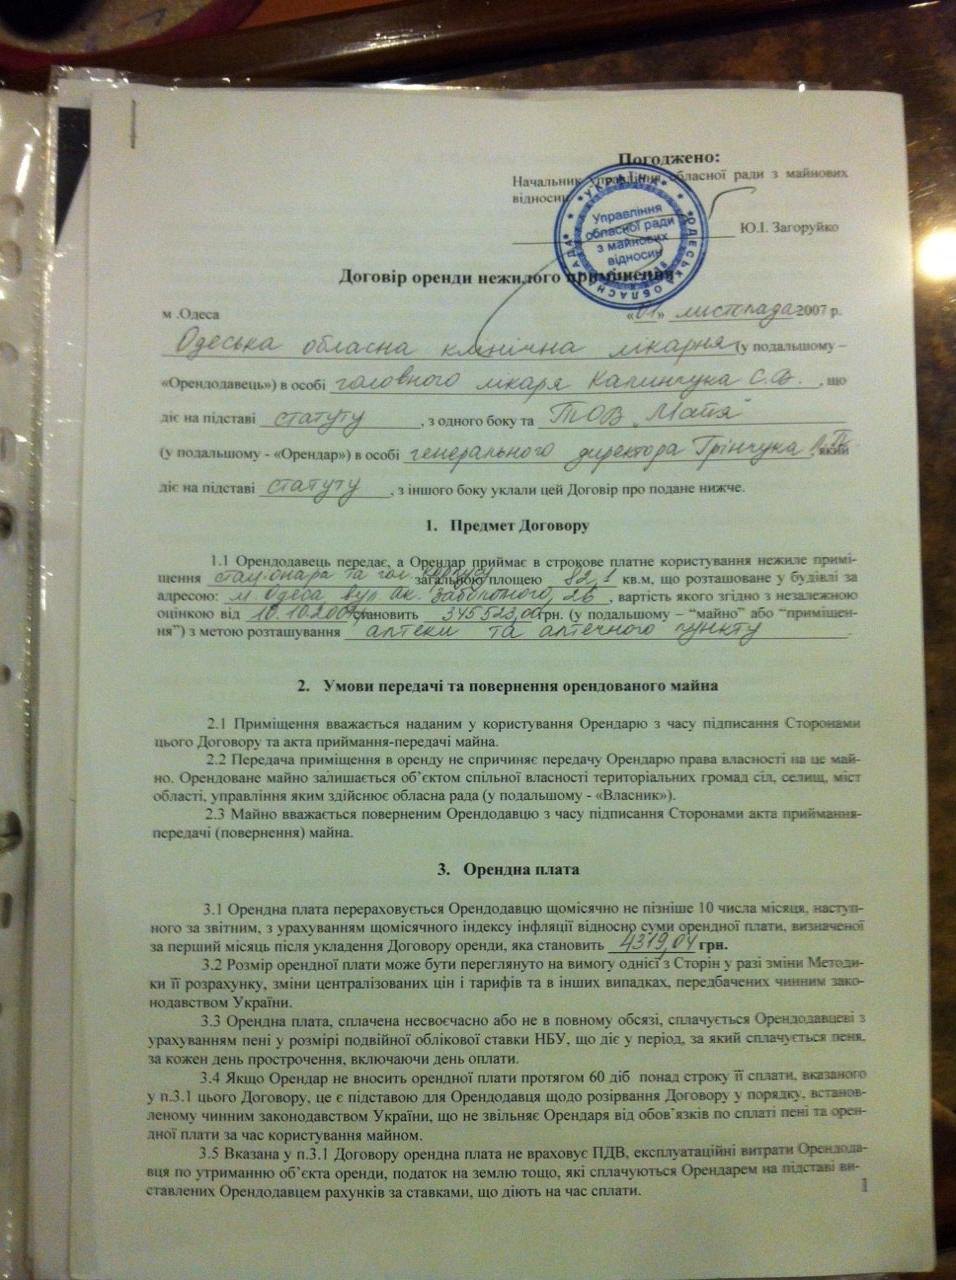 Погоджено:
Начальник Управління обласної ради з майнових
відносин
Ю.І. Загоруйко
УКРАЇНА
ОДЕСЬКА ОБЛАСНА РАДА
Управління
обласної ради
з майнових
відносин
Договір оренди нежилого приміщення
м .Одеса «01» листопада 2007 р.
Одеська обласна клінічна лікарня (у подальшому –
«Орендодавець») в особі головного лікаря Калинчука С.В., що
діє на підставі статуту, з одного боку та ТОВ „Майя"
(у подальшому - «Орендар») в особі генерального директора Грінчука, який
діє на підставі статуту, з іншого боку уклали цей Договір про подане нижче.
1. Предмет Договору
1.1 Орендодавець передає, а Орендар приймає в строкове платне користування нежиле примі-
щення стаціонара та гол. корпусу загальною площею 82,1 кв.м, що розташоване у будівлі за
адресою: м. Одеса вул. ак. Заболотного, 26, вартість якого згідно з незалежною
оцінкою від 10.10.2007 становить 345523,00 грн. (у подальшому – “майно” або “приміщен-
ня”) з метою розташування аптеки та аптечного пункту.
2. Умови передачі та повернення орендованого майна
2.1 Приміщення вважається наданим у користування Орендарю з часу підписання Сторонами
цього Договору та акта приймання-передачі майна.
2.2 Передача приміщення в оренду не спричиняє передачу Орендарю права власності на це май-
но. Орендоване майно залишається об’єктом спільної власності територіальних громад сіл, селищ, міст
області, управління яким здійснює обласна рада (у подальшому - «Власник»).
2.3 Майно вважається поверненим Орендодавцю з часу підписання Сторонами акта приймання-
передачі (повернення) майна.
3. Орендна плата
3.1 Орендна плата перераховується Орендодавцю щомісячно не пізніше 10 числа місяця, наступ-
ного за звітним, з урахуванням щомісячного індексу інфляції відносно суми орендної плати, визначеної
за перший місяць після укладення Договору оренди, яка становить 4319,04 грн.
3.2 Розмір орендної плати може бути переглянуто на вимогу однієї з Сторін у разі зміни Методи-
ки її розрахунку, зміни централізованих цін і тарифів та в інших випадках, передбачених чинним зако-
нодавством України.
3.3 Орендна плата, сплачена несвоєчасно або не в повному обсязі, сплачується Орендодавцеві з
урахуванням пені у розмірі подвійної облікової ставки НБУ, що діє у період, за який сплачується пеня,
за кожен день прострочення, включаючи день оплати.
3.4 Якщо Орендар не вносить орендної плати протягом 60 діб понад строку її сплати, вказаного
у п.3.1 цього Договору, це є підставою для Орендодавця щодо розірвання Договору у порядку, встанов-
леному чинним законодавством України, що не звільняє Орендаря від обов’язків по сплаті пені та орен-
дної плати за час користування майном.
3.5 Вказана у п.3.1 Договору орендна плата не враховує ПДВ, експлуатаційні витрати Орендода-
вця по утриманню об’єкта оренди, податок на землю тощо, які сплачуються Орендарем на підставі ви-
ставлених Орендодавцем рахунків за ставками, що діють на час сплати.
1